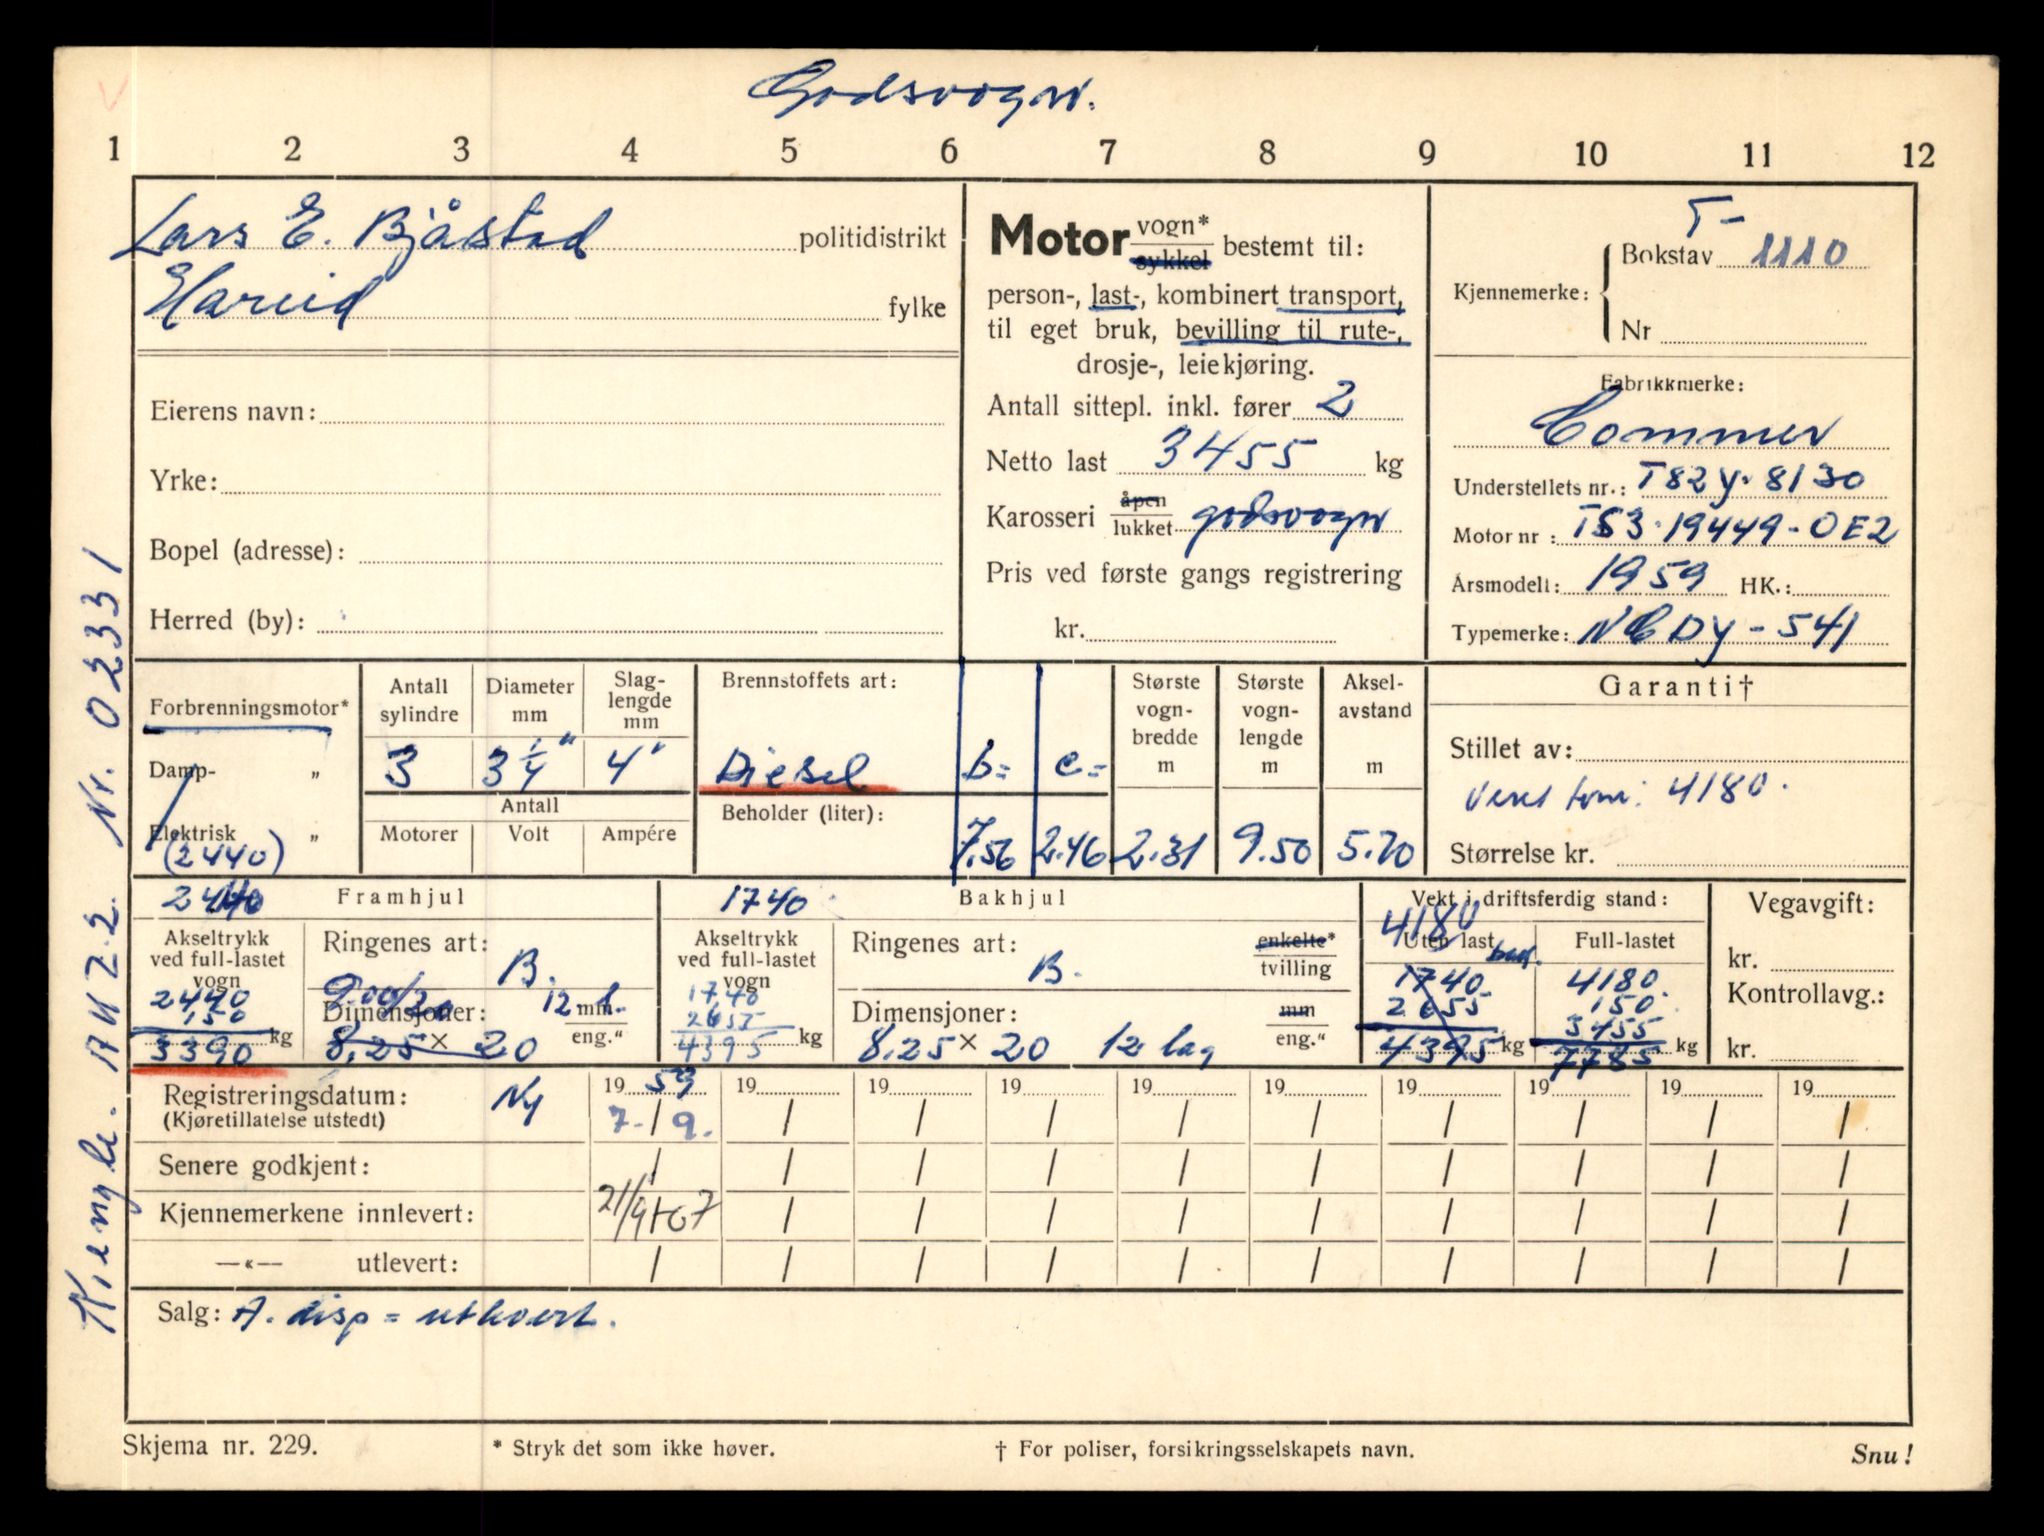 Godsvogn.
1 2 3 4 5 6 7 8 9 10 11 12
Lars E. Bjåstad politidistrikt
Hareid fylke
Eierens navn:
Yrke:
Bopel (adresse):
Herred (by):
Motor vogn* sykkel bestemt til:
person-, last-, kombinert transport,
til eget bruk, bevilling til rute-,
drosje-, leiekjøring.
Antall sittepl. inkl. fører 2
Netto last 3455 kg
Karosseri åpen lukket godsvogn
Pris ved første gangs registrering
kr.
T-
Kjennemerke: Bokstav 1110
Nr
Fabrikkmerke:
Commer
Understellets nr.: T82Y. 8130
Motor nr : TS3.19449-OE2
Årsmodell: 1959 HK.:
Typemerke: NCDY-541
Forbrenningsmotor*
Damp- „
Elektrisk „
(2440)
Antall sylindre
3
Diameter mm
3 1/4"
Slag-lengde mm
4"
Antall
Motorer Volt Ampére
Brennstoffets art:
Diesel
Beholder (liter):
b= c=
7.56 2.46
Største vogn-bredde m
2.31
Største vogn-lengde m
9.50
Aksel-avstand m
5.20
Garanti†
Stillet av:
4180.
Størrelse kr.
2440 Framhjul
Akseltrykk ved full-lastet vogn
2440
150
3390 kg
Ringenes art: B.
9.00/20 12 l
Dimensjoner: mm eng."
8,25 × 20
1740 Bakhjul
Akseltrykk ved full-lastet vogn
1740
2655
4395 kg
Ringenes art: B. enkelte* tvilling
Dimensjoner: mm eng."
8.25 × 20 12 lag
Vekt i driftsferdig stand:
4180
Uten last
bak.
1740
2655
4395 kg
Full-lastet
4180.
150.
3455
7785 kg
Vegavgift:
kr.
Kontrollavg.:
kr.
Registreringsdatum: Ny 19 59 19 19 19 19 19 19 19 19 19
(Kjøretillatelse utstedt) 7. / 9. / / / / / / / / /
Senere godkjent: / / / / / / / / / /
Kjennemerkene innlevert: 21/9-67 / / / / / / / / /
—«— utlevert: / / / / / / / / / /
Salg: A. disp = utkvert.
Skjema nr. 229. * Stryk det som ikke høver. † For poliser, forsikringsselskapets navn. Snu!
Nr. 02331